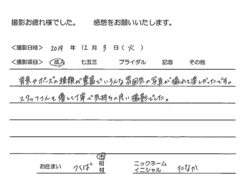 撮影お疲れ様でした。 感想をお願いいたします。
<撮影日時> 2019年 12月 3日(火)
<撮影項目> 成人 七五三 ブライダル 記念 その他
背景やポーズの種類が豊富でいろんな雰囲気の写真が撮れて楽しかったです。
スタッフさんも優しく丁寧で気持ちの良い撮影でした。
お住まい つくば 市 町 村 ニックネーム イニシャル たなか